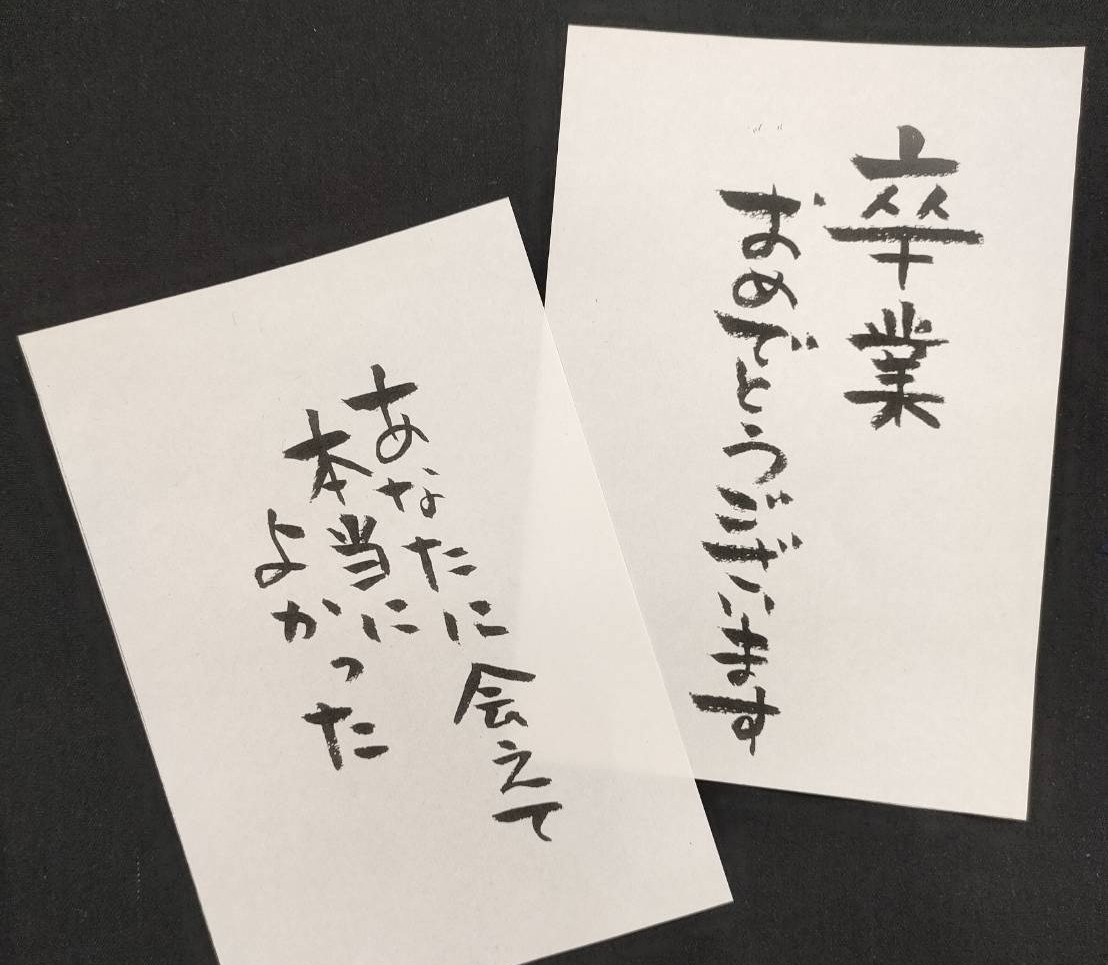 卒業
おめでとうございます
あなたに会えて
本当に
よかった